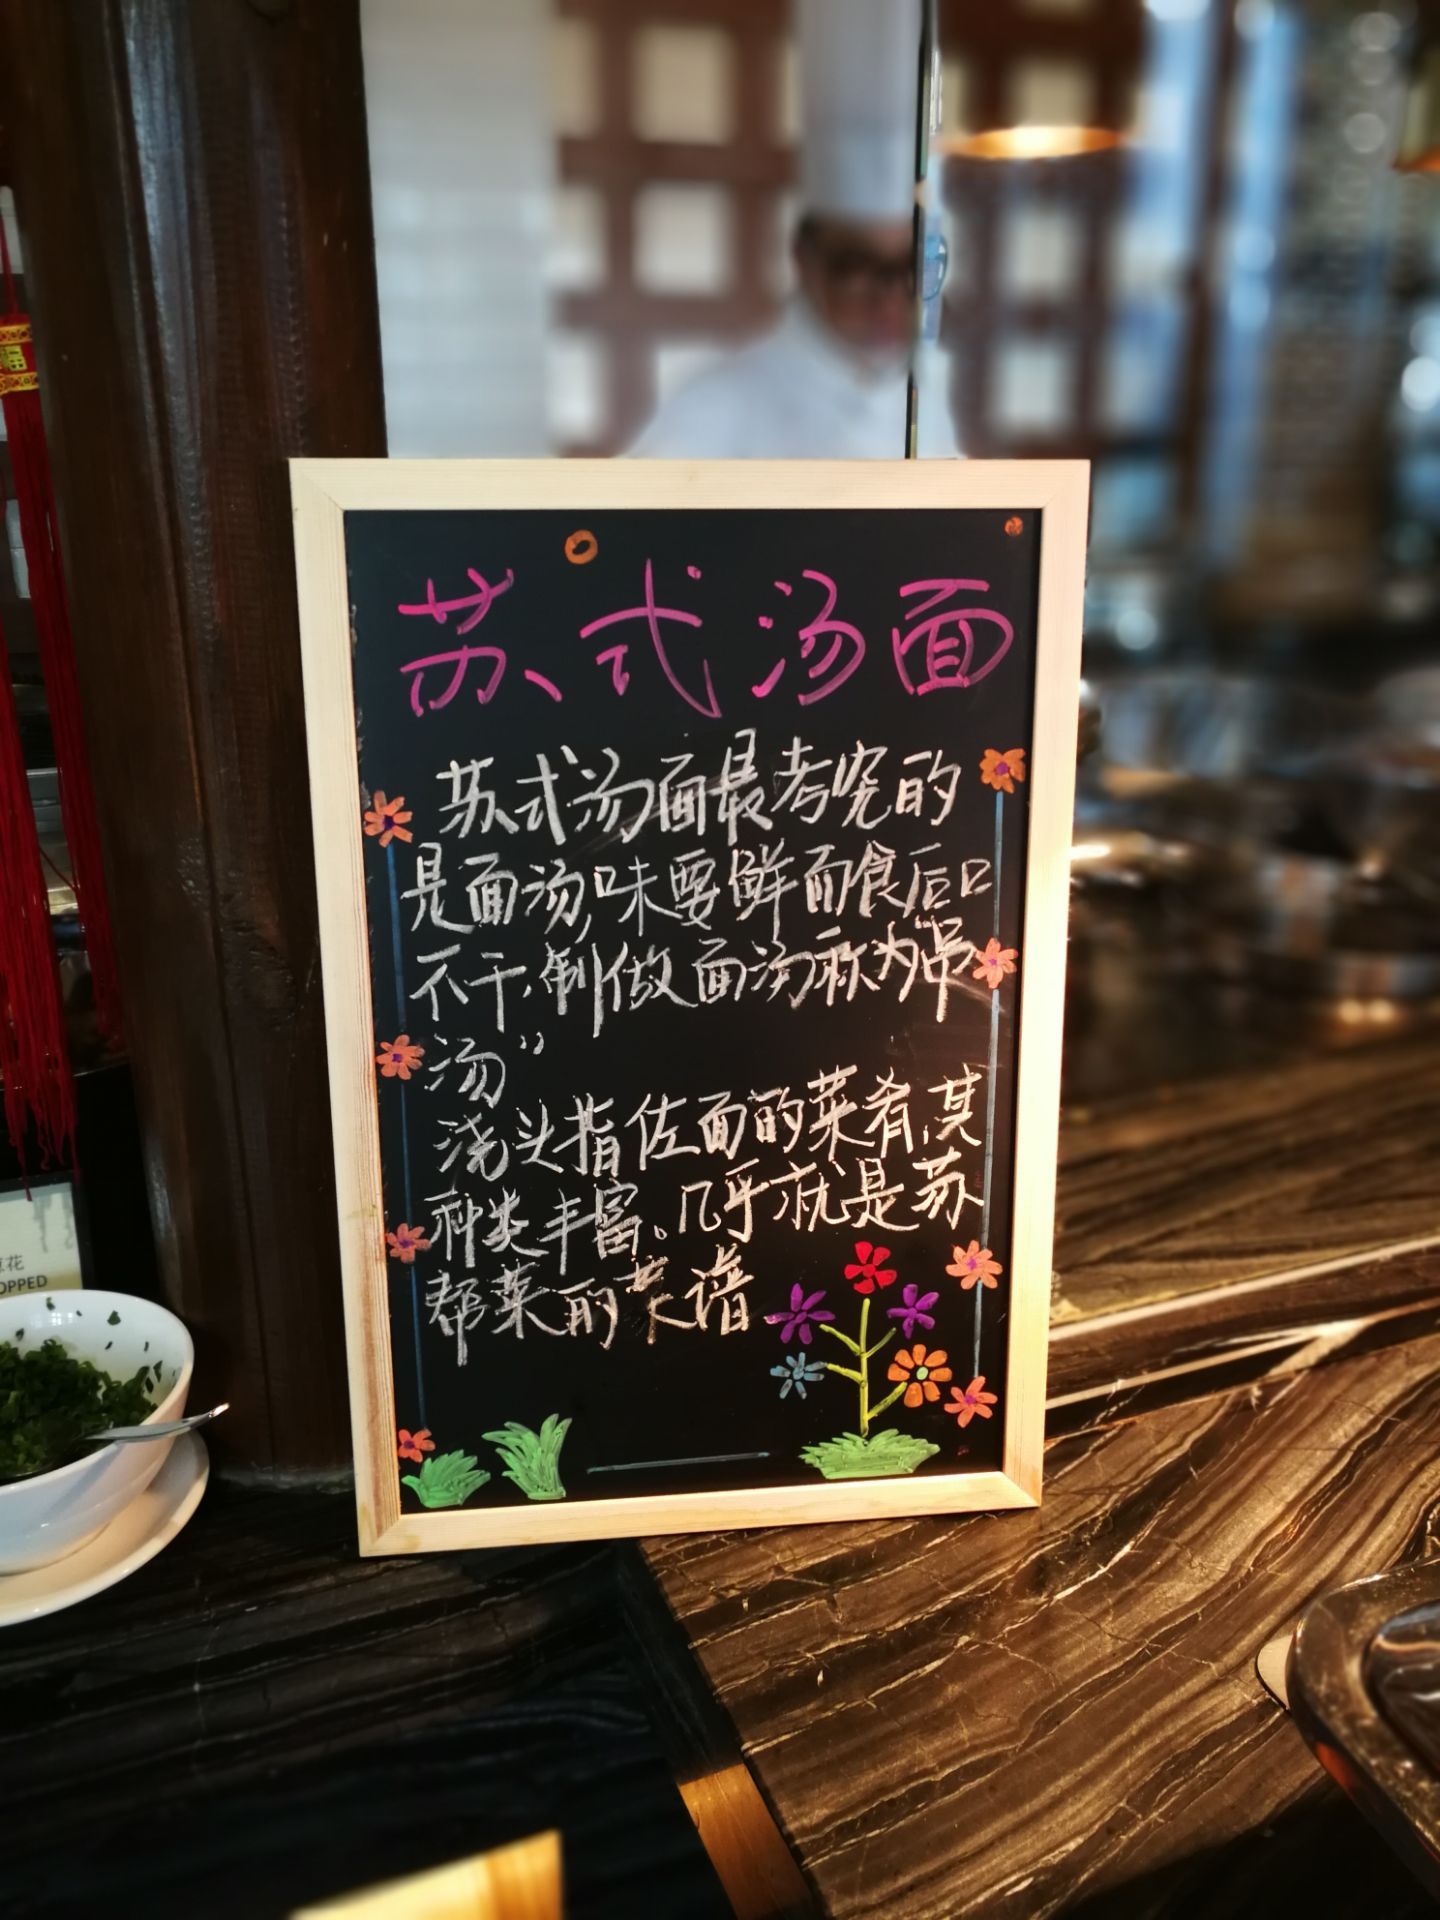 苏式汤面
苏式汤面最考究的
是面汤,味要鲜而食后口
不干,制做面汤称为"吊
汤"
浇头指佐面的菜肴,其
种类丰富。几乎就是苏
帮菜的菜谱
花
OPPED